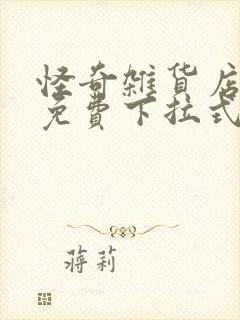 怪奇雑货店
免費下拉式
蒋莉